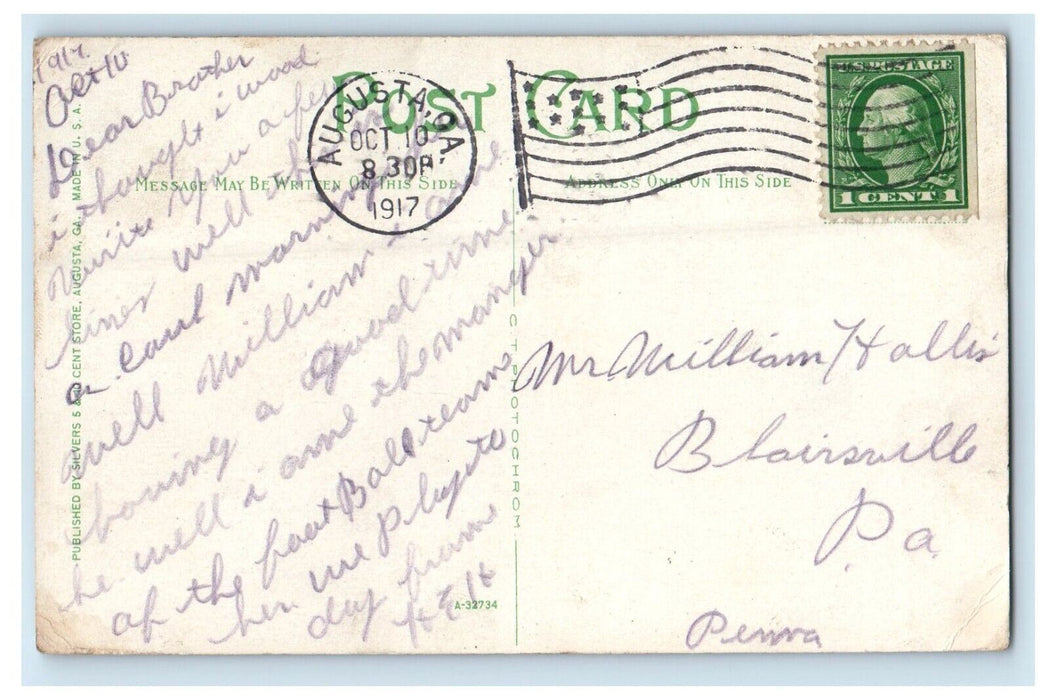 1917
Oct 10
Dear Brother
i thought i wood
write you a few
lines well this is
a caul morning
well William i ame
having a good time
he well i ame the manger
of the foot Ball team
her we play to
day from
H E H
POST CARD
MESSAGE MAY BE WRITTEN ON THIS SIDE
ADDRESS ONLY ON THIS SIDE
AUGUSTA, GA.
OCT 10
8 30P
1917
U.S. POSTAGE
1 CENT 1
Mr William Hollis
Blairsville
Pa
Penna
PUBLISHED BY SILVERS 5 & 10 CENT STORE, AUGUSTA, GA. MADE IN U. S. A.
C. T. PHOTOCHROM
A-32734